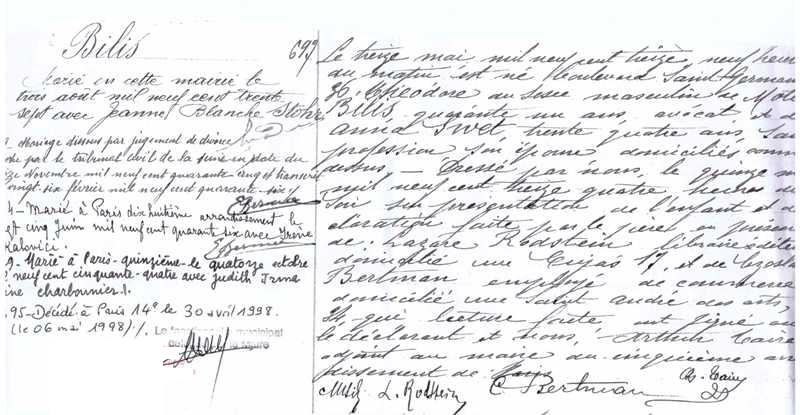 Bilis
693
Marié en cette mairie le
trois août mil neuf cent trente
sept avec Jeanne Blanche
mariage dissous par jugement de divorce
par le tribunal civil de la Seine en date du
ze Novembre mil neuf cent quarante cinq et transcrit
vingt six février mil neuf cent quarante six
4 - Marié à Paris dix huitième arrondissement le
gt cinq juin mil neuf cent quarante six avec Irène
9 - Marié à Paris-quinzième-le quatorze octobre
neuf cent cinquante-quatre avec Judith Irma
ine charbonnier./.
95 - Décédé à Paris 14e le 30 avril 1998.
(le 06 mai 1998)./.
municipal
Le treize mai mil neuf cent treize neuf heures
du matin est né boulevard Saint-Germain
Théodore du sexe masculin de
Bilis, quarante un ans, avocat et
Anna trente quatre ans, sans
profession son épouse domiciliés comme
dessus. - Dressé par nous, le quinze
mil neuf cent treize quatre heures du
soir sur présentation de l'enfant et
déclaration faite par le père; en présence
de Lazare Rodstein libraire éditeur
domicilié rue Cujas 17, et de
Bertman employé de commerce
domicilié rue Saint André des arts,
qui lecture faite, ont signé avec
le déclarant et nous, Arthur
adjoint au maire du cinquième
rissement de Paris
L. Rodstein
Bertman